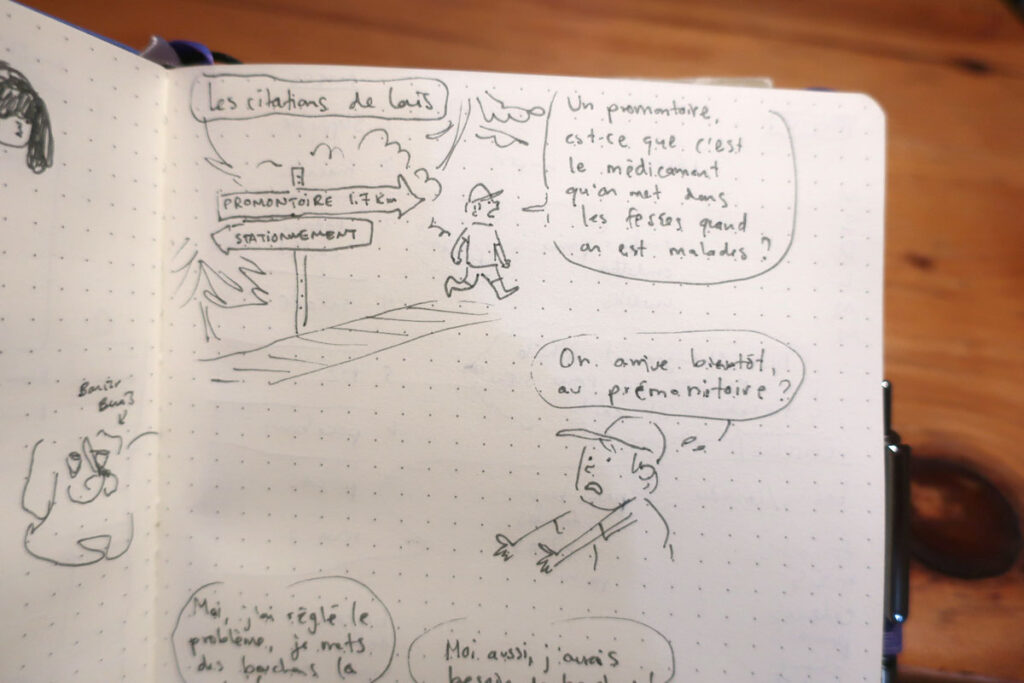 Les citations de Loïs
PROMONTOIRE 1.7 Km
STATIONNEMENT
Un promontoire,
est-ce que c'est
le médicament
qu'on met dans
les fesses quand
on est malades ?
On arrive bientôt,
au prémonitoire ?
Moi, j'ai réglé le
problème, je mets
des bouchons la
Moi aussi, j'aurais
besoin